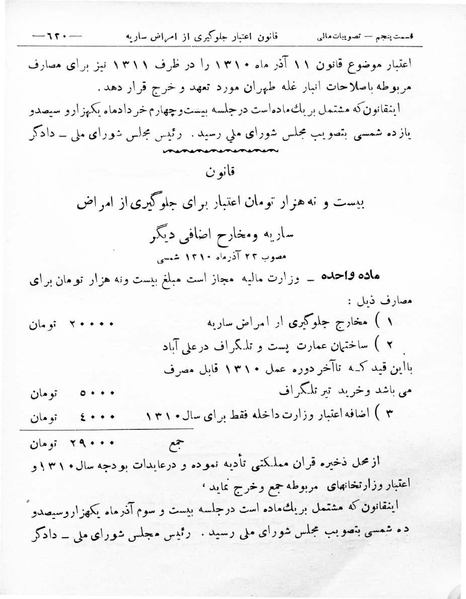 قسمت پنجم — تصویبات مالی    قانون اعتبار جلوگیری از امراض ساریه    —٦٢٠—
اعتبار موضوع قانون ۱۱ آذر ماه ۱۳۱۰ را در ظرف ۱۳۱۱ نیز برای مصارف
مربوطه باصلاحات انبار غله طهران مورد تعهد و خرج قرار دهد.
اینقانون که مشتمل بریك ماده است در جلسه بیست و چهارم خرداد ماه یکهزار و سیصد و
یازده شمسی بتصویب مجلس شورای ملی رسید. رئیس مجلس شورای ملی ـ دادگر
قانون
بیست و نه هزار تومان اعتبار برای جلوگیری از امراض
ساریه و مخارج اضافی دیگر
مصوب ۲۳ آذرماه ۱۳۱۰ شمسی
ماده واحده ـ وزارت مالیه مجاز است مبلغ بیست ونه هزار تومان برای
مصارف ذیل :
۱ ) مخارج جلوگیری از امراض ساریه    ۲۰۰۰۰ تومان
۲ ) ساختمان عمارت پست و تلگراف در علی آباد
بااین قید که تاآخر دوره عمل ۱۳۱۰ قابل مصرف
می باشد وخرید تیر تلگراف    ٥۰۰۰ تومان
۳ ) اضافه اعتبار وزارت داخله فقط برای سال ۱۳۱۰    ٤۰۰۰ تومان
جمع    ۲۹۰۰۰ تومان
از محل ذخیره قران مملکتی تأدیه نموده و در عایدات بودجه سال ۱۳۱۰ و
اعتبار وزارتخانهای مربوطه جمع و خرج نماید ،
اینقانون که مشتمل بریك ماده است در جلسه بیست و سوم آذرماه یکهزار و سیصد و
ده شمسی بتصویب مجلس شورای ملی رسید. رئیس مجلس شورای ملی ـ دادگر